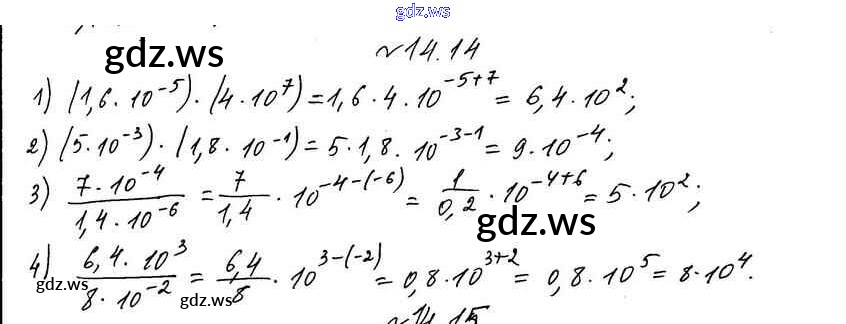 gdz.ws
gdz.ws
№14.14
1) (1,6·10⁻⁵)·(4·10⁷)=1,6·4·10⁻⁵⁺⁷= 6,4·10²;
2) (5·10⁻³)·(1,8·10⁻¹)= 5·1,8·10⁻³⁻¹= 9·10⁻⁴;
3) 7·10⁻⁴/1,4·10⁻⁶ = 7/1,4 · 10^{-4-(-6)} = 1/0,2 · 10⁻⁴⁺⁶= 5·10²;
gdz.ws
4) 6,4·10³/8·10⁻² = 6,4/8 · 10^{3-(-2)} = 0,8·10³⁺² = 0,8·10⁵= 8·10⁴.
gdz.ws
gdz.ws
№14.15